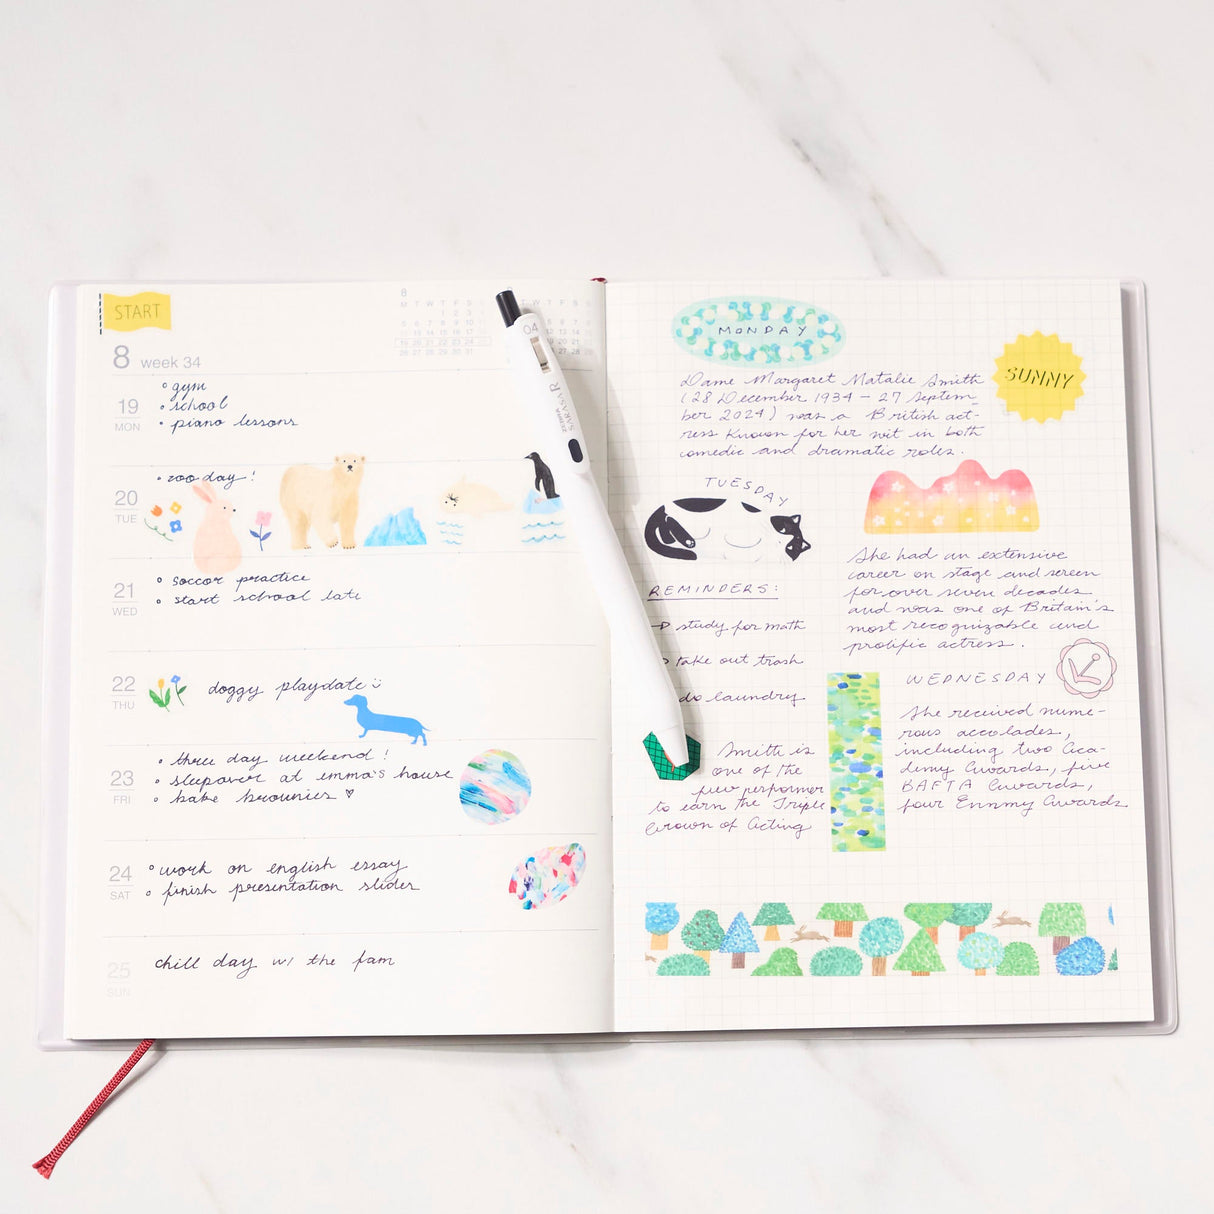 START
8 week 34
8
M T W T F S
1 2 3
19
MON
gym
school
piano lessons
20
TUE
zoo day!
21
WED
soccor practice
start school late
22
THU
doggy playdate
23
FRI
three day weekend!
sleepover at emma's house
bake brownies ♡
24
SAT
work on english essay
finish presentation slider
25
SUN
chill day w/ the fam
04
ZEBRA
SARASA R
MONDAY
SUNNY
Dame Margaret Natalie Smith
(28 December 1934 - 27 Septem-
ber 2024) was a British act-
ress known for her wit in both
comedic and dramatic roles.
TUESDAY
She had an extensive
career on stage and screen
for over seven decades
and was one of Britain's
most recognizable and
prolific actress.
REMINDERS:
study for math
take out trash
do laundry
WEDNESDAY
She received nume-
rous accolades,
including two Aca-
demy Awards, five
BAFTA Awards,
four Emmy Awards
Smith is
one of the
few performer
to earn the Triple
Crown of Acting